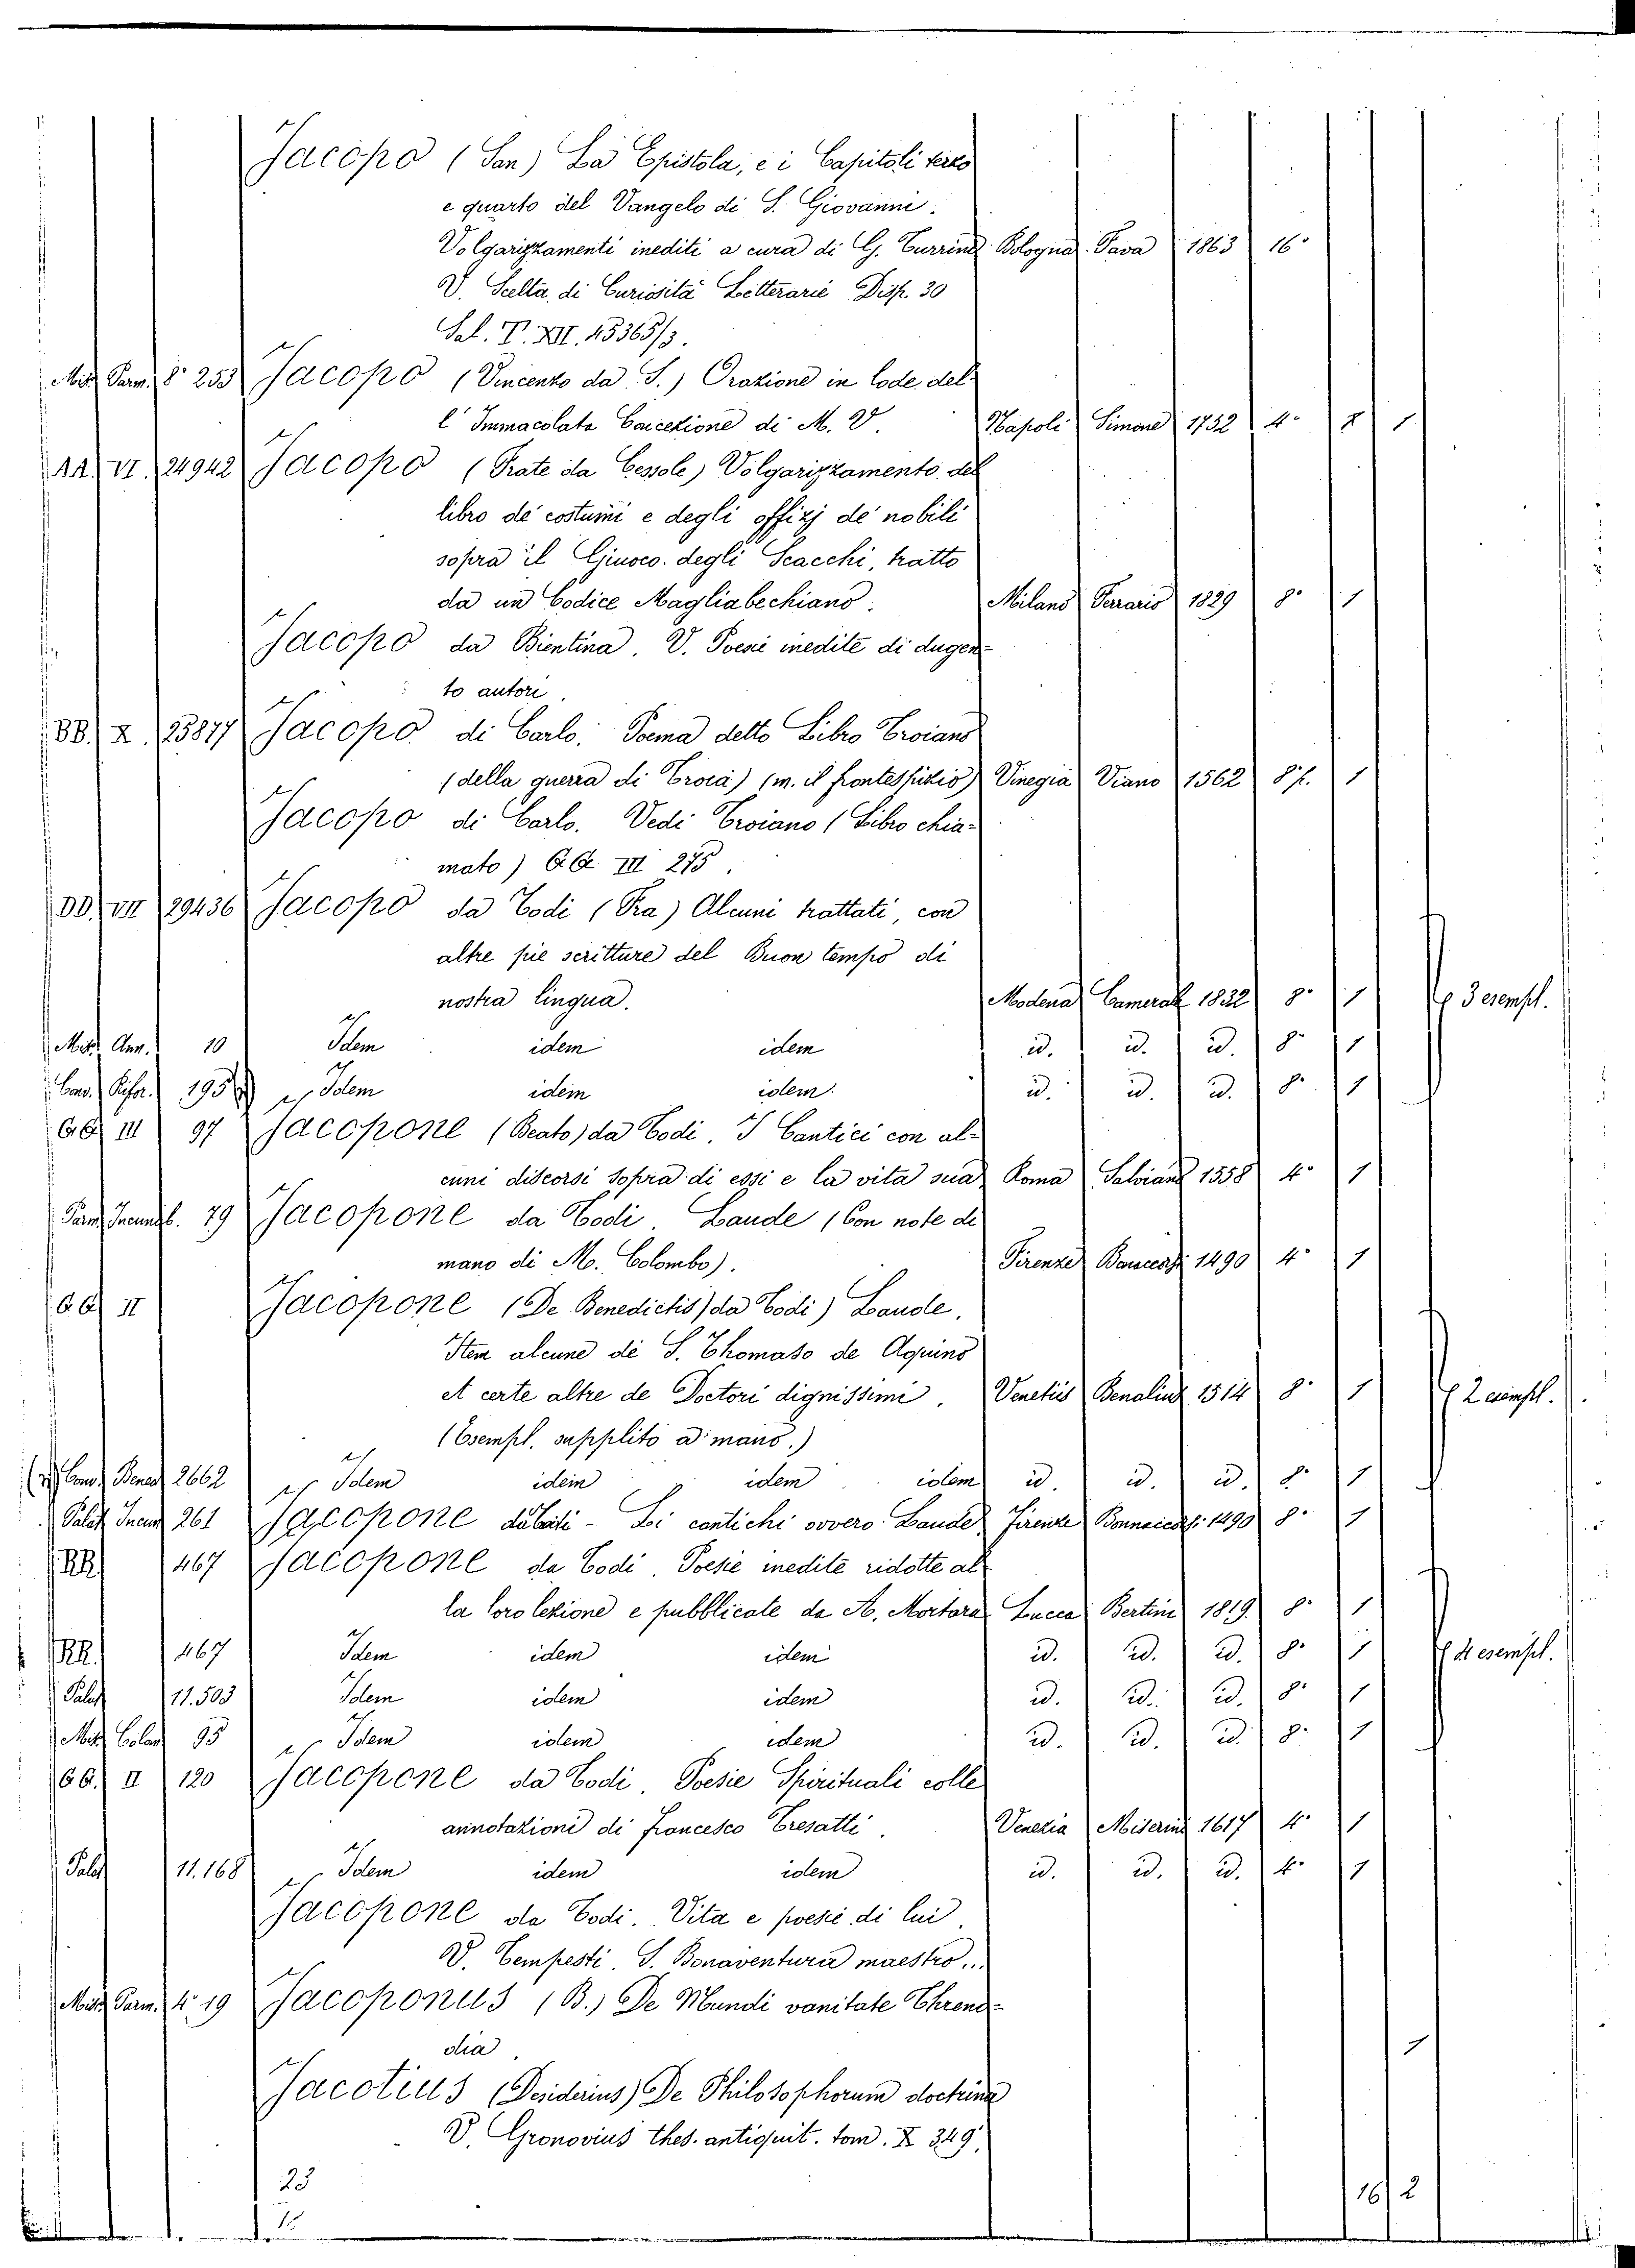 Jacopo (San) La Epistola, e i Capitoli terzo
e quarto del Vangelo di S. Giovanni.
Volgarizzamenti inediti a cura di G. Turrini Bologna Fava 1863 16°
V. Scelta di Curiosità Letterarie Disp. 30
Sal. T. XII. 15365/3.
Misc. Parm. 8° 253 Jacopo (Vincenzo da S.) Orazione in lode del-
l' Immacolata Concezione di M. V. Napoli Simone 1752 4° 1
AA VI. 24942 Jacopo (Frate da Cessole) Volgarizzamento del
libro de' costumi e degli offizj de' nobili
sopra il Giuoco degli Scacchi, tratto
da un Codice Magliabechiano. Milano Ferrario 1829 8° 1
Jacopo da Bientina. V. Poesie inedite di dugen-
to autori.
BB. X. 25877 Jacopo di Carlo. Poema detto Libro Troiano
(della guerra di Troia) (m. il frontespizio) Vinegia Viano 1562 8° f. 1
Jacopo di Carlo. Vedi Troiano (Libro chia-
mato) GG III 275.
DD. VII 29436 Jacopo da Todi (Fra) Alcuni trattati, con
altre pie scritture del Buon tempo di
nostra lingua. Modena Cameral 1832 8° 1 3 esempl.
Misc. Ann. 10 Idem idem idem id. id. id. 8° 1
195 Idem idem idem id. id. id. 8° 1
GG III 97 Jacopone (Beato) da Todi. I Cantici con al-
cuni discorsi sopra di essi e la vita sua Roma Salviano 1558 4° 1
Parm. Incunab. 79 Jacopone da Todi. Laude (Con note di
mano di M. Colombo). Firenze Bonaccorsi 1490 4° 1
GG II Jacopone (De Benedictis) da Todi) Laude.
Item alcune de S. Thomaso de Aquino
et certe altre de Doctori dignissimi. Venetiis Benalius 1514 8° 1 2 esempl.
(Esempl. supplito a mano.)
2662 Idem idem idem idem id. id. id. 8° 1
Palat. Incun. 261 Jacopone da Todi - Loi cantichi overo Laude Firenze Bonnaccorsi 1490 8° 1
RR. 467 Jacopone da Todi. Poesie inedite ridotte al-
la loro lezione e pubblicate da A. Mortara Lucca Bertini 1819 8° 1
RR. 467 Idem idem idem id. id. id. 8° 1 4 esempl.
Palat. 11.503 Idem idem idem id. id. id. 8° 1
Misc. Colom. 95 Idem idem idem id. id. id. 8° 1
GG. II 120 Jacopone da Todi. Poesie Spirituali colle
annotazioni di Francesco Tresatti. Venezia Miserini 1617 4° 1
Palat. 11.168 Idem idem idem id. id. id. 4° 1
Jacopone da Todi. Vita e poesie di lui.
V. Tempesti. S. Bonaventura maestro...
Misc. Parm. 4° 19 Jacoponus (B.) De Mundi vanitate Threno-
dia 1
Jacotius (Desiderius) De Philosophorum doctrina
V. Gronovius thes. antiquit. tom. X 349.
23 16 2